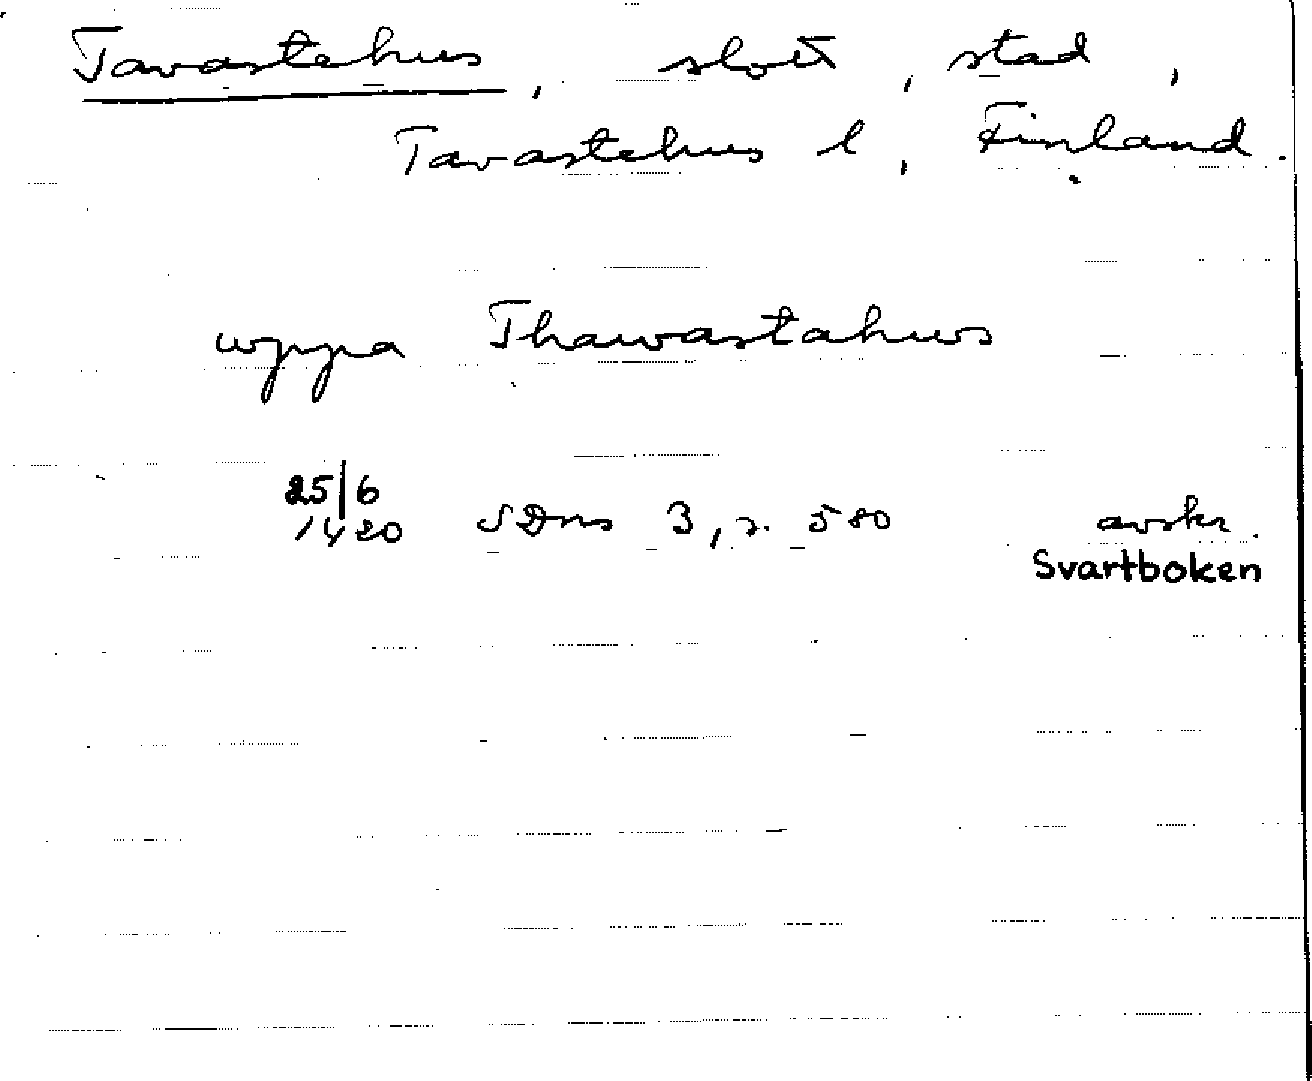 Tavastehus, slott, stad,
Tavastehus l, Finland.
wppa Thawastahws
25/6
1420 SDns 3, s. 580 avskr.
Svartboken